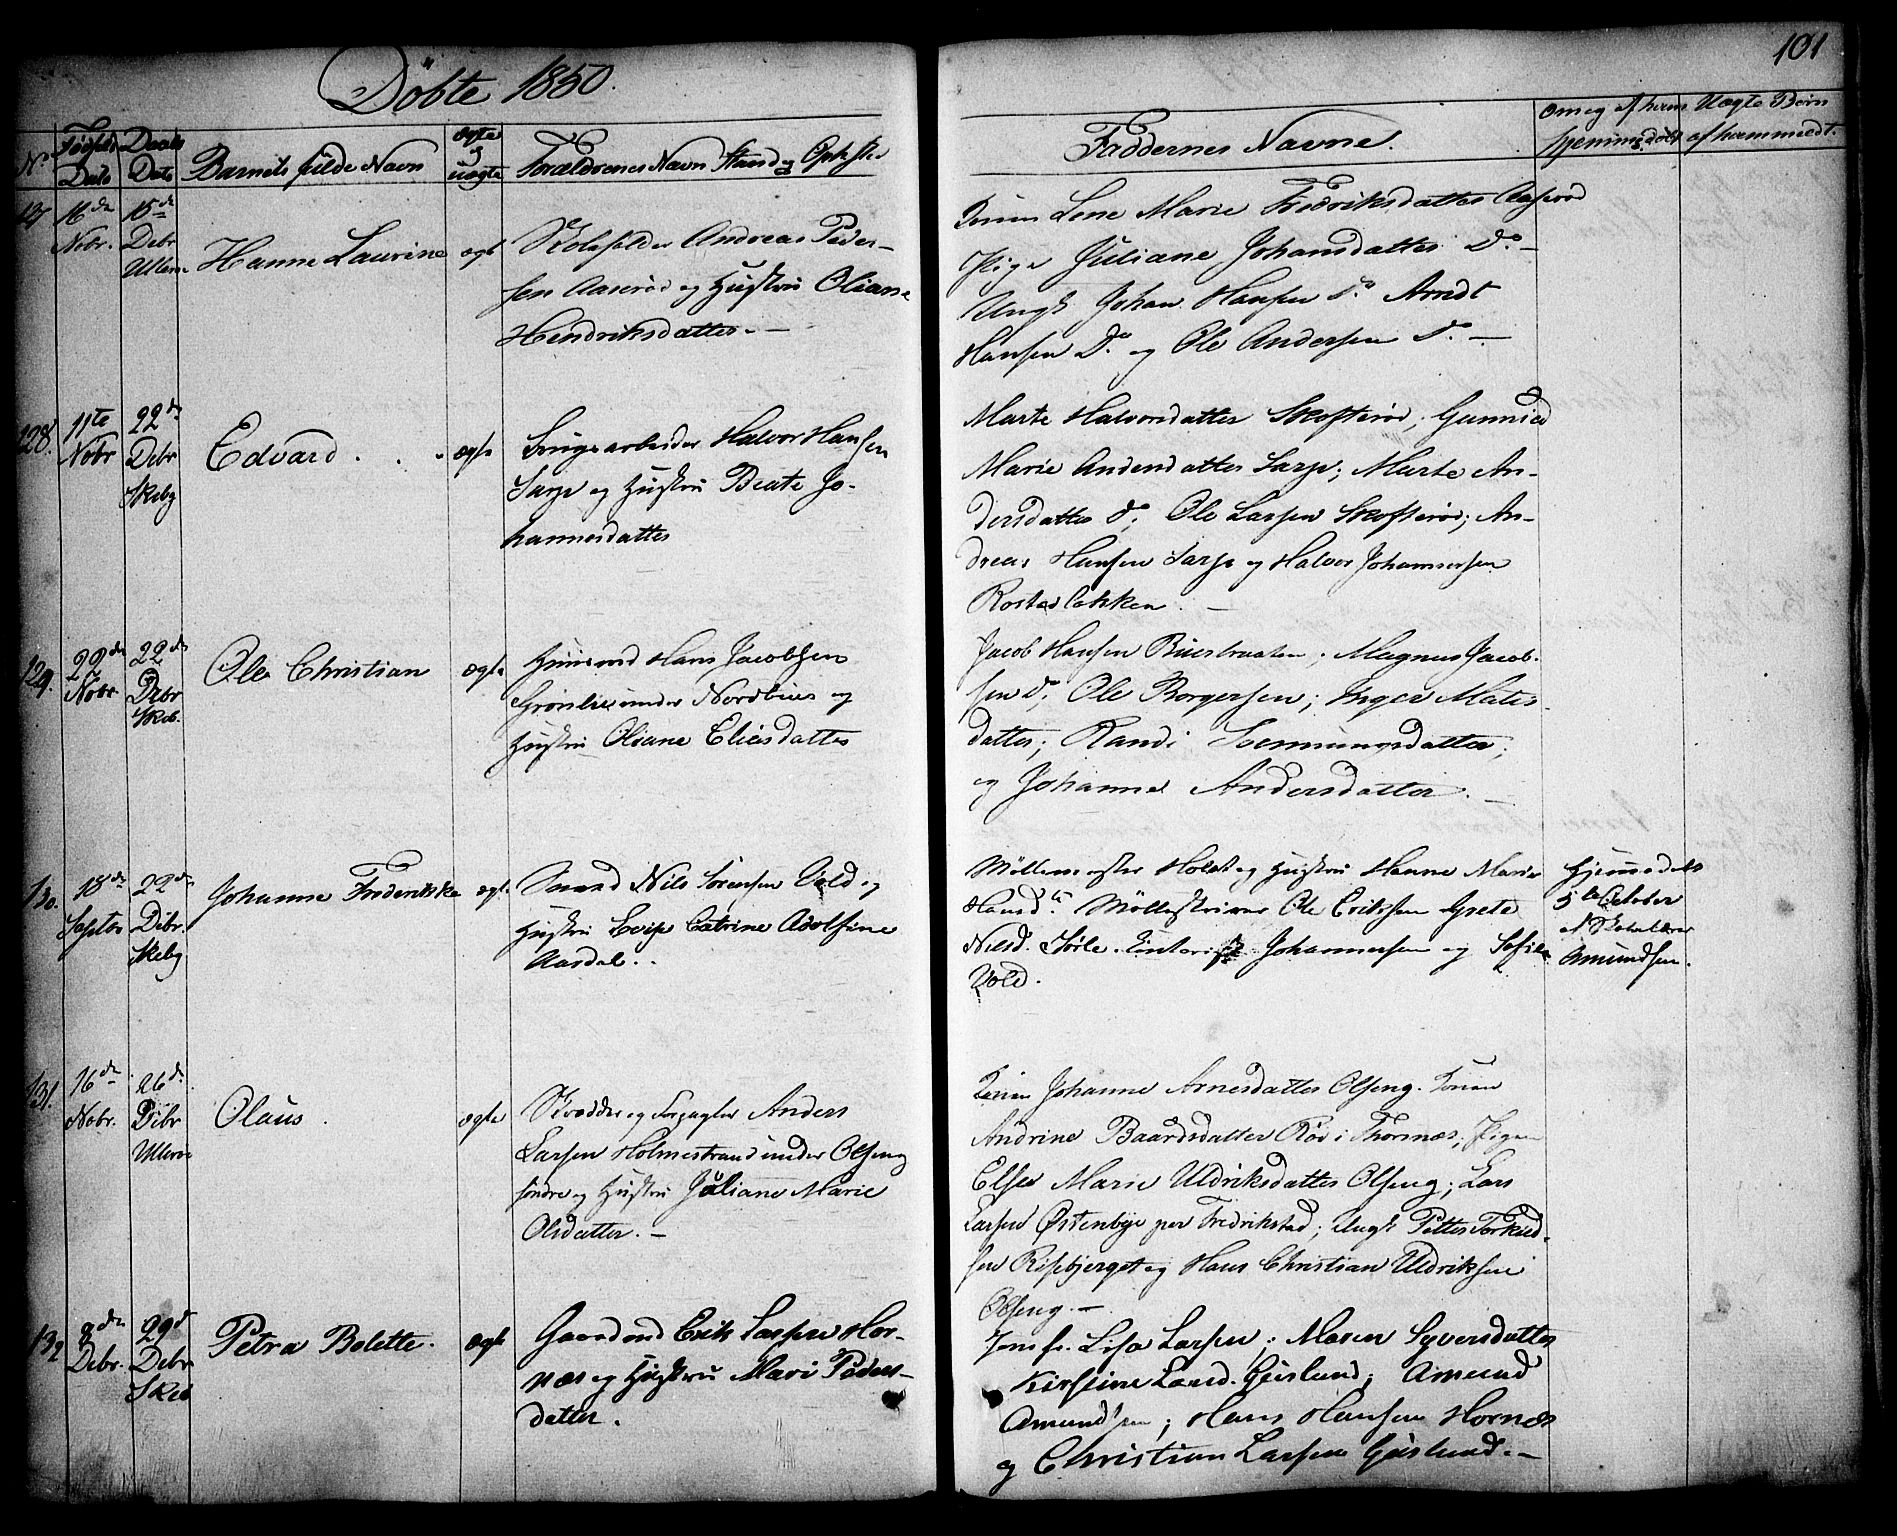 101
Döbte 1850.
No
Fødsels Dato
Daabs Dato
Barnets fulde Navn
ægte og uægte
Forældrenes Navn Stand og
Faddernes Navne.
om og af hvem hjemmedøbt
Uægte Børn af hvem meldt.
127
16de Nobr.
15de Debr
Hanne Laurine
ægte
Andreas Peder-
sen Aaserød og Hustru Oliane
Hendriksdatter. —
Konen Lene Marie Fredriksdatter Aaserød
Pige Juliane Johansdatter Do —
Ungk. Johan Hansen Do Arndt
Hansen Do og Ole Andersen Do —
128.
11te Nobr
22de Debr Skeby
Edvard . . .
ægte
Brugsarbeider Halvor Hansen
Sarp og Hustru Beate Jo-
hannesdatter
Marte Halvorsdatter Skofterød; Gunnild
Marie Andersdatter Sarp; Marte An-
dersdatter Do; Ole Larsen Skofterød; An-
dreas Hansen Sarp og Halvor Johannessen
Rostadbakken. —
129.
22de Nobr
22de Debr Skeb.
Ole Christian
ægte
Huusmand Hans Jacobsen
under Nordbye og
Hustru Oliane Eliasdatter
Jacob Hansen ; Magnus Jacob-
sen Do; Ole Borgersen; Inger Matis-
datter; Randi
og Johanne Andersdatter. —
130.
18de Septbr
22de Debr. Skeby
Johanne Frederikke
ægte
Nils Sørensen Vold og
Hustru Catrine Adolfine
Aardal. .
Møllemester Holst og Hustru Hanne Marie
Hansd. Mølleskriver Ole Eriksen Grete
Nilsd. Johannessen og Sofie
Vold.
Hjemmedøbt
5te October
af Skolelærer
Amundsen.
131.
16de Nobr.
26de Debr
Olaus.
ægte
Skrædder og Anders
Larsen Holmestrand under Olseng
søndre og Hustru Juliane Marie
Olsdatter. —
Konen Johanne Arnesdatter Olseng. Konen
Andrine Baardsdatter Rød i Thornæs; Pigen
Else Marie Uldriksdatter Olseng; Lars
Larsen Østenbye per Fredrikstad; Ungk. Petter Torkild-
sen Risbjerget og Hans Christian Uldriksen
Olseng. —
132
8de Debr.
29d Debr Skeb
Petra Bolette.
ægte
Gaardmd Erik Larsen Hor-
næs og Hustru Mari Peders-
datter.
Jomfr. Lisa Larsen; Maren Syversdatter
Kirstine Larsd. Gislund; Amund
Amundsen; Hans Hansen Hornæs
og Christian Larsen Gislund. —